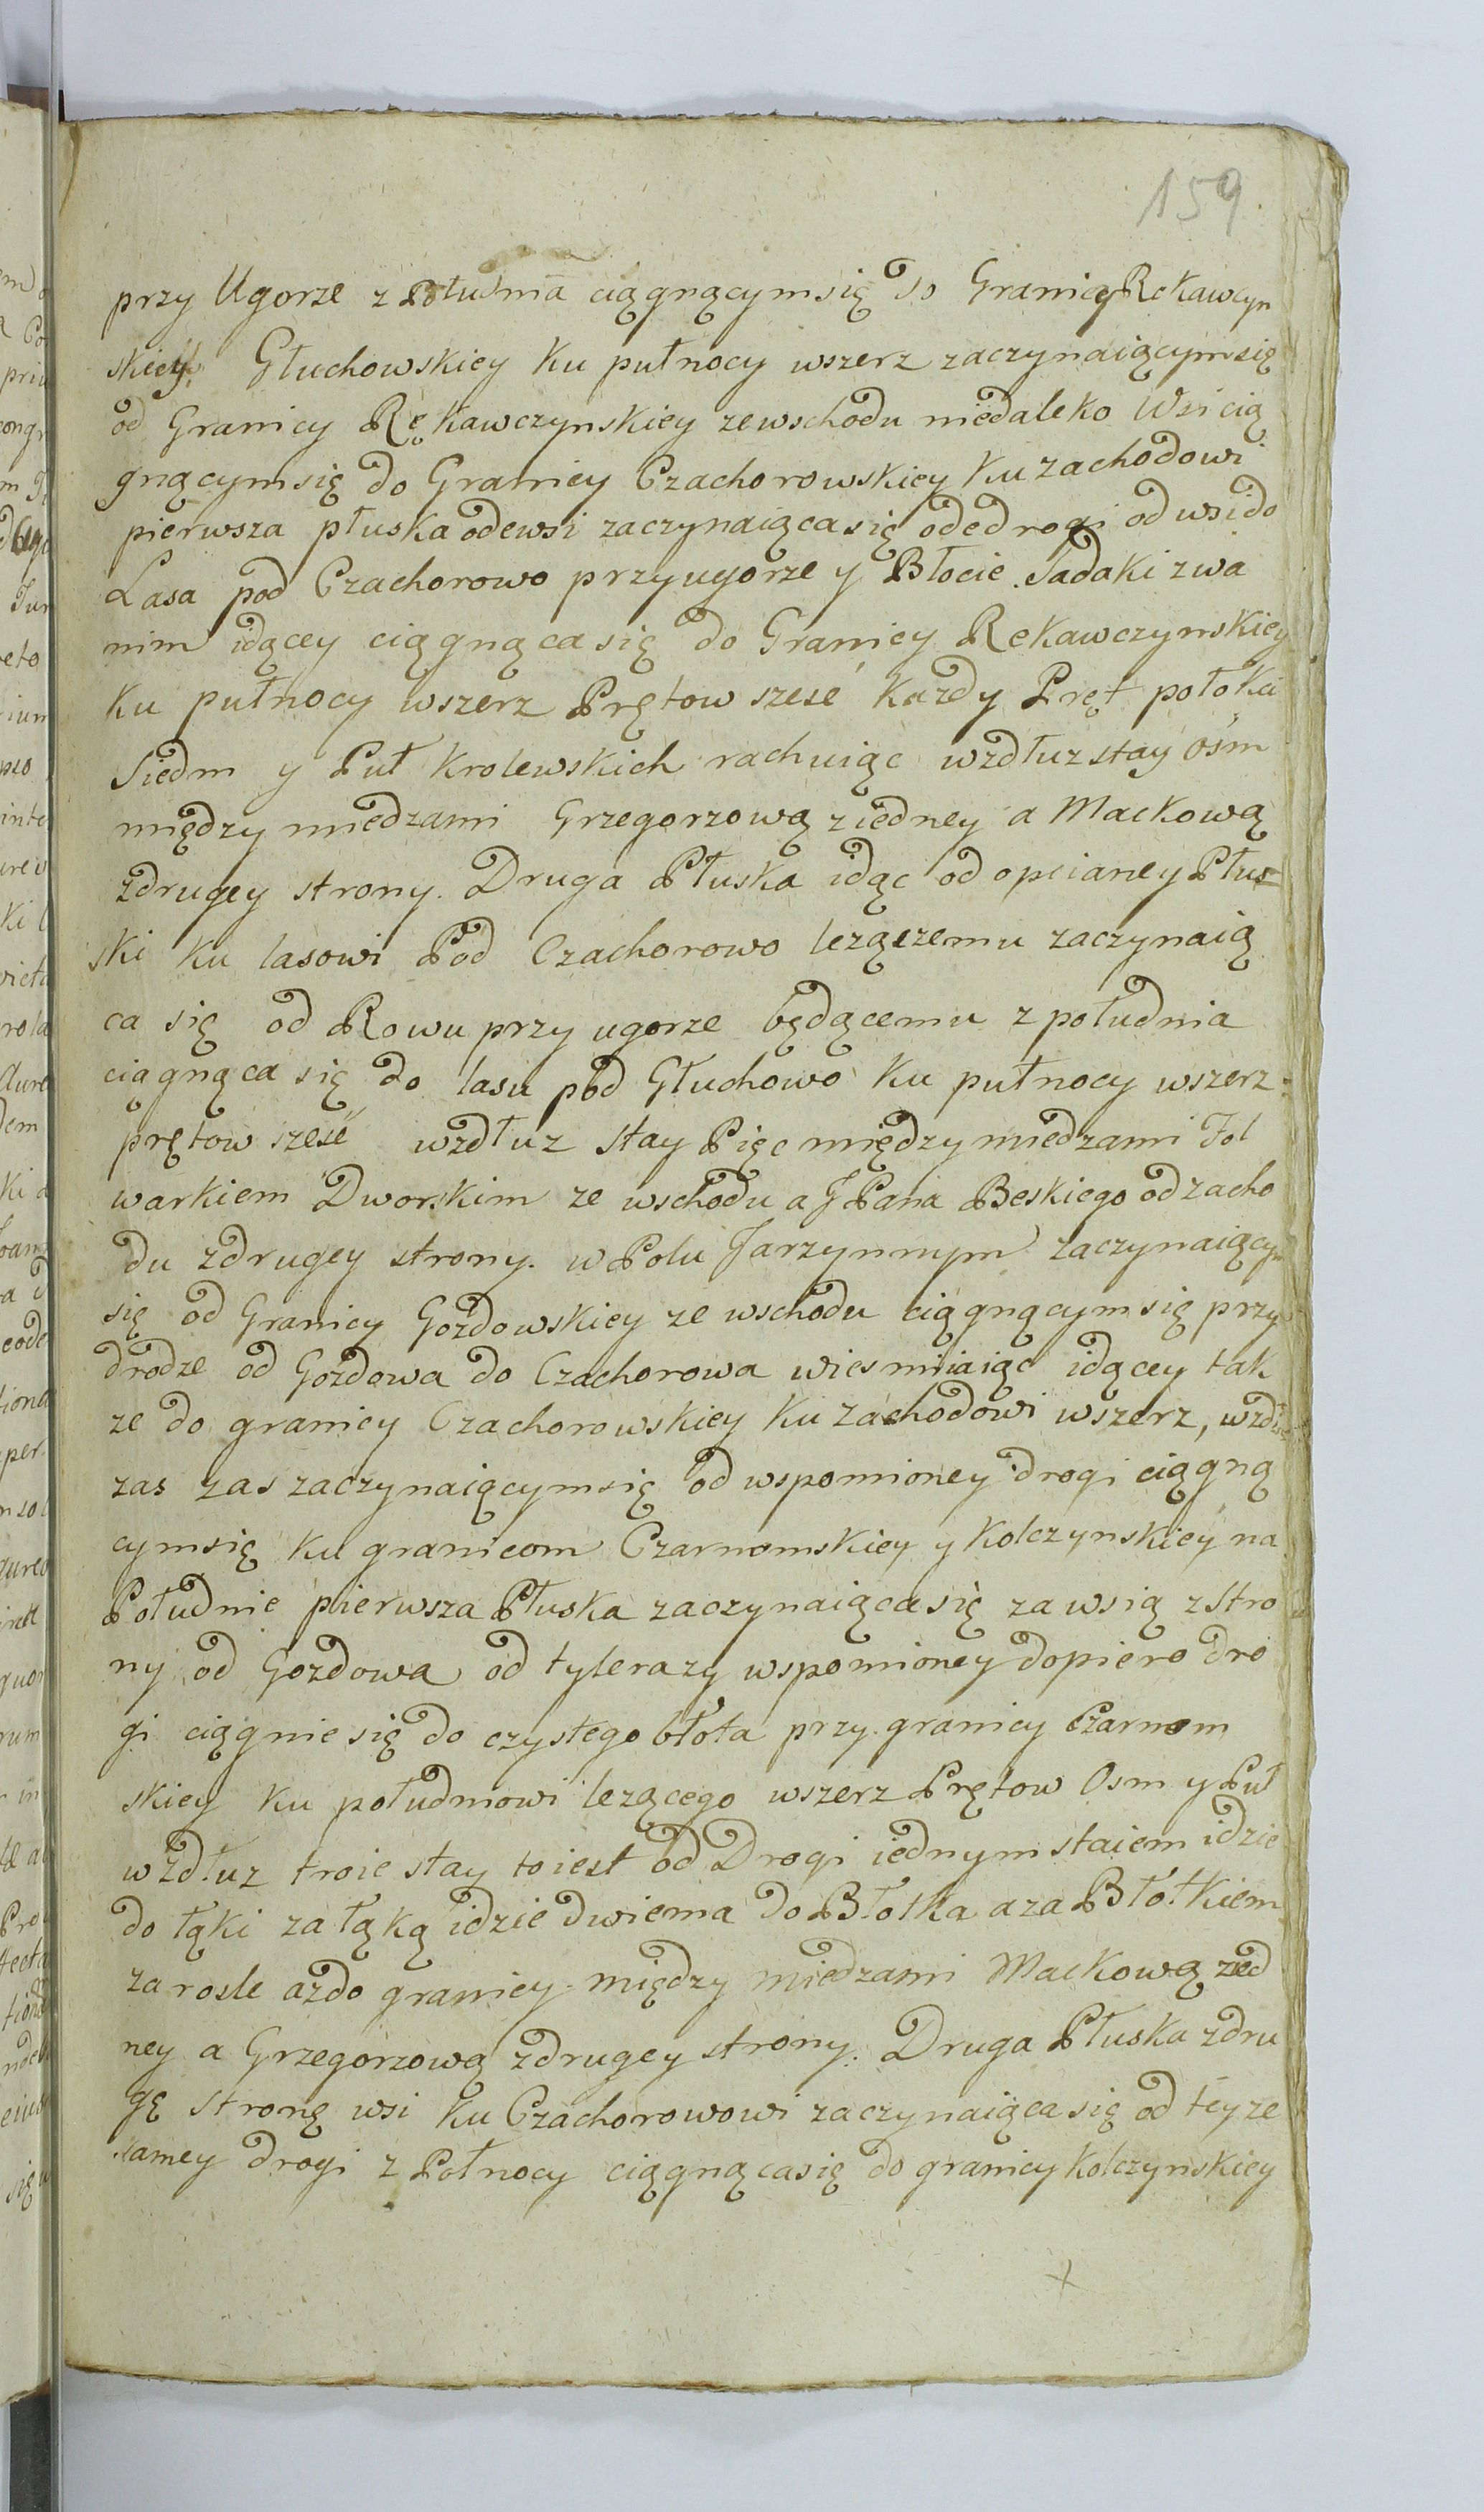 159.
przy Ugorze z Płudnia ciągnącymsię do Granicy Rekawczyn
skiey, Głuchowskiey Ku pułnocy wszerz zaczynaiącymsię
od Granicy Rękawczynskiey zewschodu niedaleko Wsi cią
gnącymsię do Granicy Czachorowskiey Ku zachodowi
pierwsza płuska odewsi zaczynaiącasię odedrogi odwsido
Lasa pod Czachorowo przyugorze y Błocie Sadaki zwa
nim idącey ciągnącasię do Granicy Rekawczynskiey
Ku pułnocy wszerz Prętow szesć Kazdy Pręt połokci
Siedm y Puł Krolewskich rachuiąc wzdłuz stay ośm
między miedzami Grzegorzową ziedney a Mackową
zdrugey strony. Druga Płuska idąc od opcianey Płus
ski Ku lasowi Pod Czachorowo lezączemu zaczynaią
ca się od Rowu przy ugorze będącemu z południa
ciągnąca się do lasu pod Głuchowo Ku pułnocy wszerz
prętow szesć wzdłuz stay Pięc między miedzami Fol
warkiem Dworskim ze wschodu a JPana Beskiego od zacho
du zdrugey strony. w Polu Jarzynnym zaczynaiącym
się od Granicy Gozdowskiey ze wschodu ciągnącymsię przy
drodze od Gozdowa do Czachorowa wies miiaiąc idącey tak
ze do granicy Czachorowskiey Ku zachodowi wszerz, wzdłuz
zas zas zaczynaiącymsię od wspomioney drogi ciągną
cymsię ku granicom Czarnomskiey y Kolczynskiey na
Południe pierwsza Płuska zaczynaiącasię za wsią z Stro
ny od Gozdowa od tylerazy wspomioney dopiero dro
gi ciągnie się do czystego błota przy granicy Czarnom
skiey Ku południowi lezącego wszerz Prętow Osm y Puł
wzdłuz troie stay toiest od Drogi iednym staiem idzie
do łąki za łąką idzie dwiema do Błotka a za Błotkiem
zarosle azdo granicy między miedzami Mackową zied
ney a Grzegorzową zdrugey strony. Druga Płuska zdru
gę stronę wsi Ku Czachorowowi zaczynaiącasię od teyze
samey drogi z Połnocy ciągnącasię do granicy Kolczynskiey